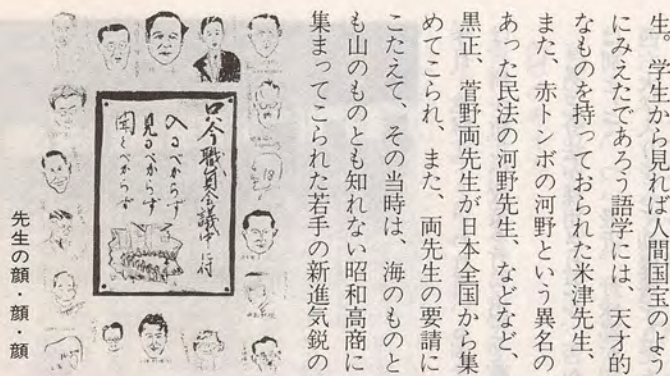 生。学生から見れば人間国宝のよう
にみえたであろう語学には、天才的
なものを持っておられた米津先生、
また、赤トンボの河野という異名の
あった民法の河野先生、などなど、
黒正、菅野両先生が日本全国から集
めてこられ、また、両先生の要請に
こたえて、その当時は、海のものと
も山のものとも知れない昭和高商に
集まってこられた若手の新進気鋭の
只今職員会議中に付
入るべからず
見るべからず
聞くべからず
先生の顔・顔・顔